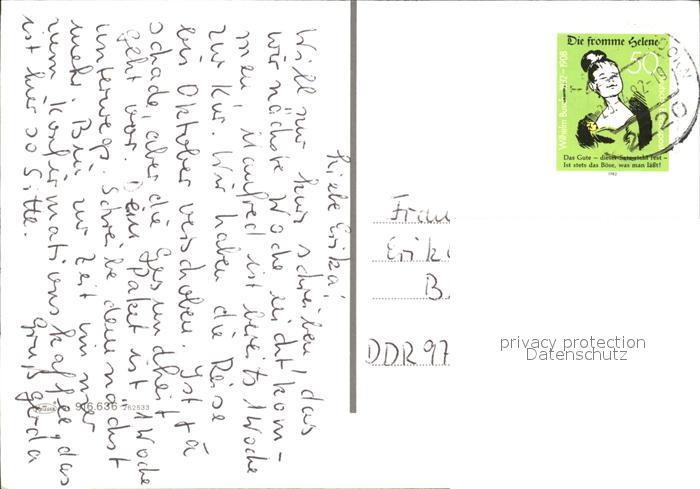 Liebe Erika!
Will nur kurz schreiben, das
wir nächste Woche nicht kom-
men, Manfred ist bereits 1 Woche
zur Kur. Wir haben die Reise
bis Oktober verschoben. Ist ja
schade, aber die Gesundheit
geht vor. Dein Paket ist 1 Woche
unterwegs. Schreibe demnächst
mehr. Bin zur Zeit immer
zum Konfirmationskaffee, das
ist hier so Sitte.
Gruß Gerda
916.636 762533
Die fromme Helene
50
Wilhelm Busch 1832-1908
Das Gute – dieser Satz steht fest –
Ist stets das Böse, was man läßt!
1982
20
Frau
Erik
B
DDR 97
privacy protection
Datenschutz